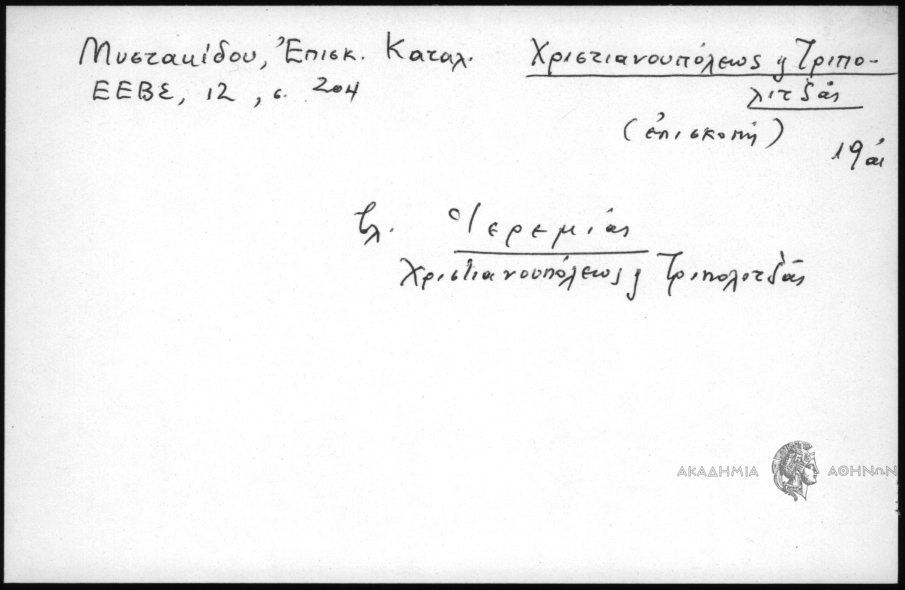 Μυστακίδου, Ἐπισκ. Καταλ.
ΕΕΒΣ, 12, σ. 204
Χριστιανουπόλεως ἢ Τριπο-
λιτζᾶς
(ἐπισκοπὴ)
19 αἰ
βλ. Ἱερεμίας
Χριστιανουπόλεως ἢ Τριπολιτζᾶς
ΑΚΑΔΗΜΙΑ ΑΘΗΝΩΝ